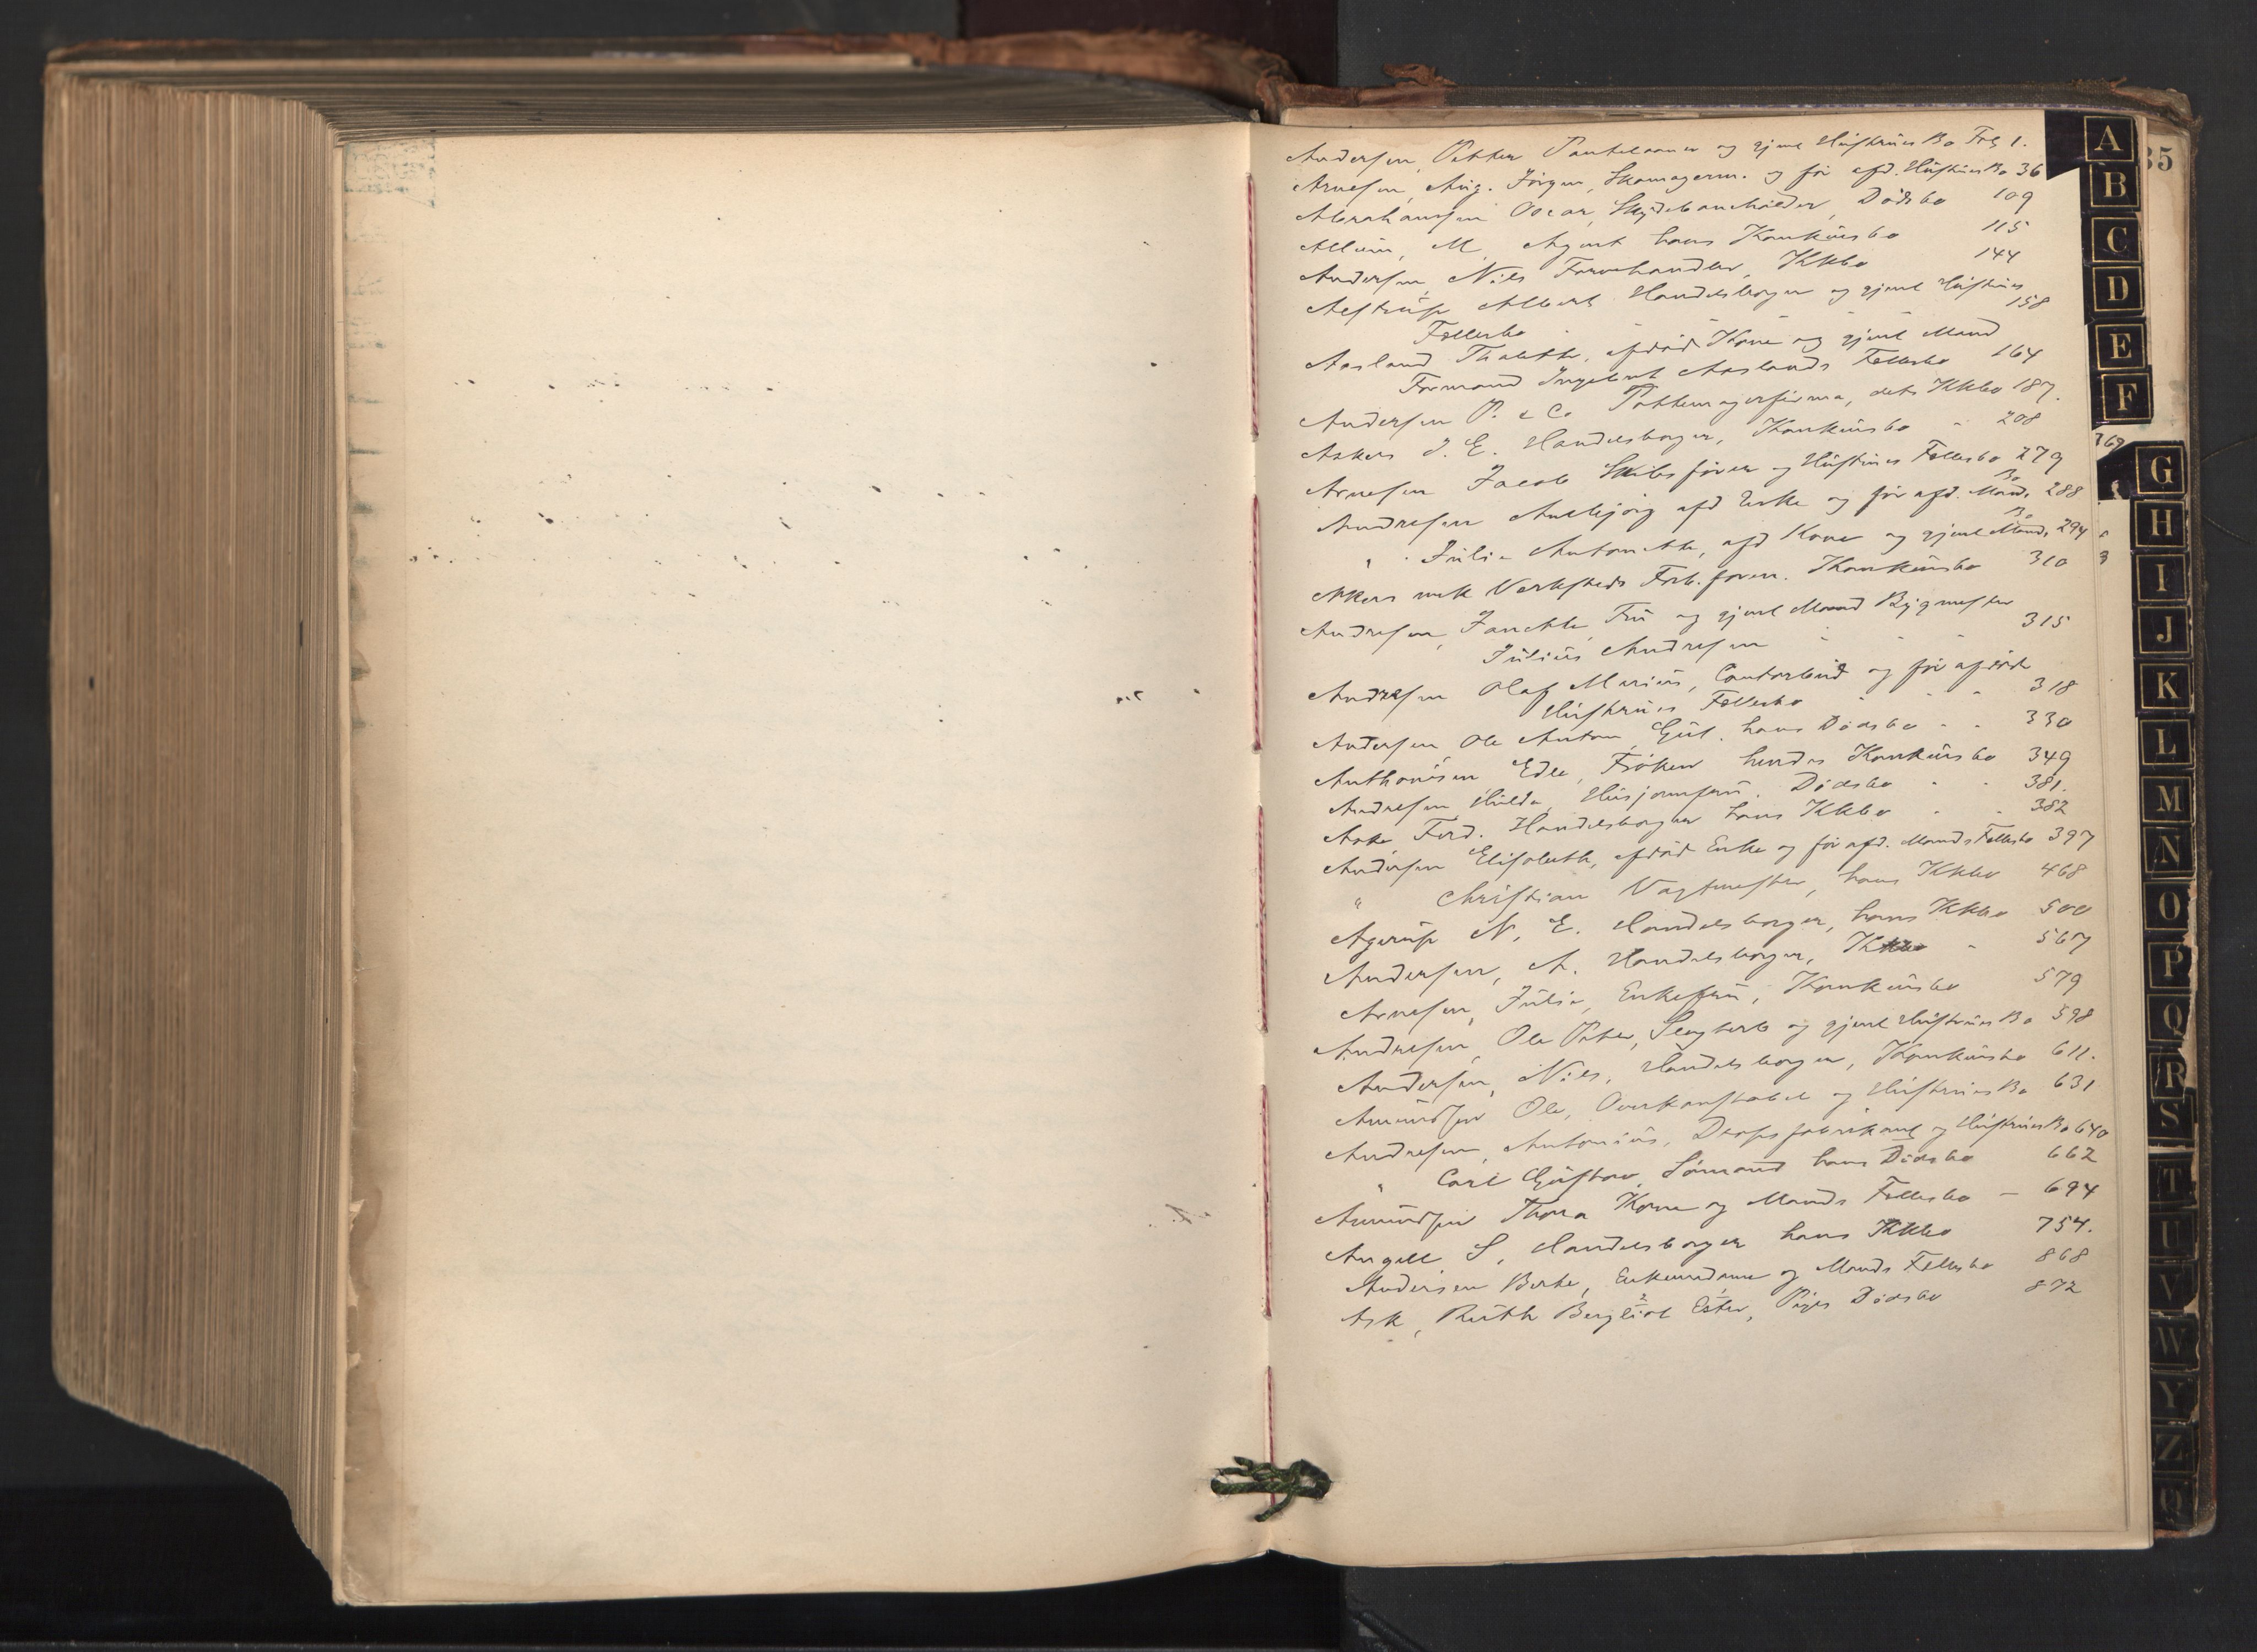 Andersen, Petter Pantelaaner og gjenl Hüstrües Bo Fol 1.
Arnesen, Aug. Jörgen, Skomagerm. og för afd. Hüstrües Bo 36
Abrahamsen Oscar, Skydebaneholder, Dödsbo 109
M. Agent hans Konkürsbo 115
Andersen, Nils Farvehandler, Kkbo 144
Albert Handelsborger og gjenl Hüstrües
Fællesbo 158
Aasland Thalette, afdöd Kone og gjenl Mand
Formand Ingebret Aaslands Fællesbo 164
Andersen P. & Co Pottemagerfirma, dets Kkbo 187.
Askers J. E. Handelsborger, Konkürsbo - 208
Arnesen Jacob Skibsförer og Hüstrües Fællesbo 279
Andresen Anebjörg afd Enke og för afd. Mands Bo 288
" Julie Antonette, afd Kone og gjenl Mands Bo 294
Akers mek Verksteds Forb. foren. Konkürsbo 310
Andresen, Janette, Frü og gjenl Mand Bygmester
Jülius Andresen - - - 315
Andresen Olaf Marius, Contorbüd og för afdöde
Hüstrües Fællesbo - - - 318
Andersen Ole Anton, hans Dödsbo - - 330
Anthonisen Edle, Fröken hendes Konkürsbo 349
Andresen Hilda, Hüsjomfrü. Dödsbo - - 381.
Aske Ferd. Handelsborger hans Kkbo - - 382
Andersen Elisabeth, afdöd Enke og för afd. Mands Fællesbo 397
" Christian Vagtmester, hans Kkbo 468
Agerüp N. E. Handelsborger, hans Kkbo 500
Andersen, A. Handelsborger, Kkbo - 567
Arnesen, Jülie, Enkefrü, Konkürsbo 579
Andresen, Ole Peter, og gjenl Hüstrües Bo 598
Andersen, Nils, Handelsborger, Konkürsbo 611.
Amündsen Ole, Overkonstabel og Hüstrües Bo 631
Andresen, Antonius, Dropsfabrikant og Hüstrües Bo 640
" Carl Güstav, Sömand hans Dödsbo 662
Amündsen Thora Kone og Mands Fællesbo - 694
Angell S, Handelsborger hans Kkbo 754.
Andersen Berte, Enkemadame og Mands Fællesbo 868
Ask, Rüth Bergliot Ester, Piges Dödsbo 872
A
B
C
D
E
F
G
H
I
J
K
L
M
N
O
P
Q
R
S
T
U
V
W
Y
Z
Ø
35